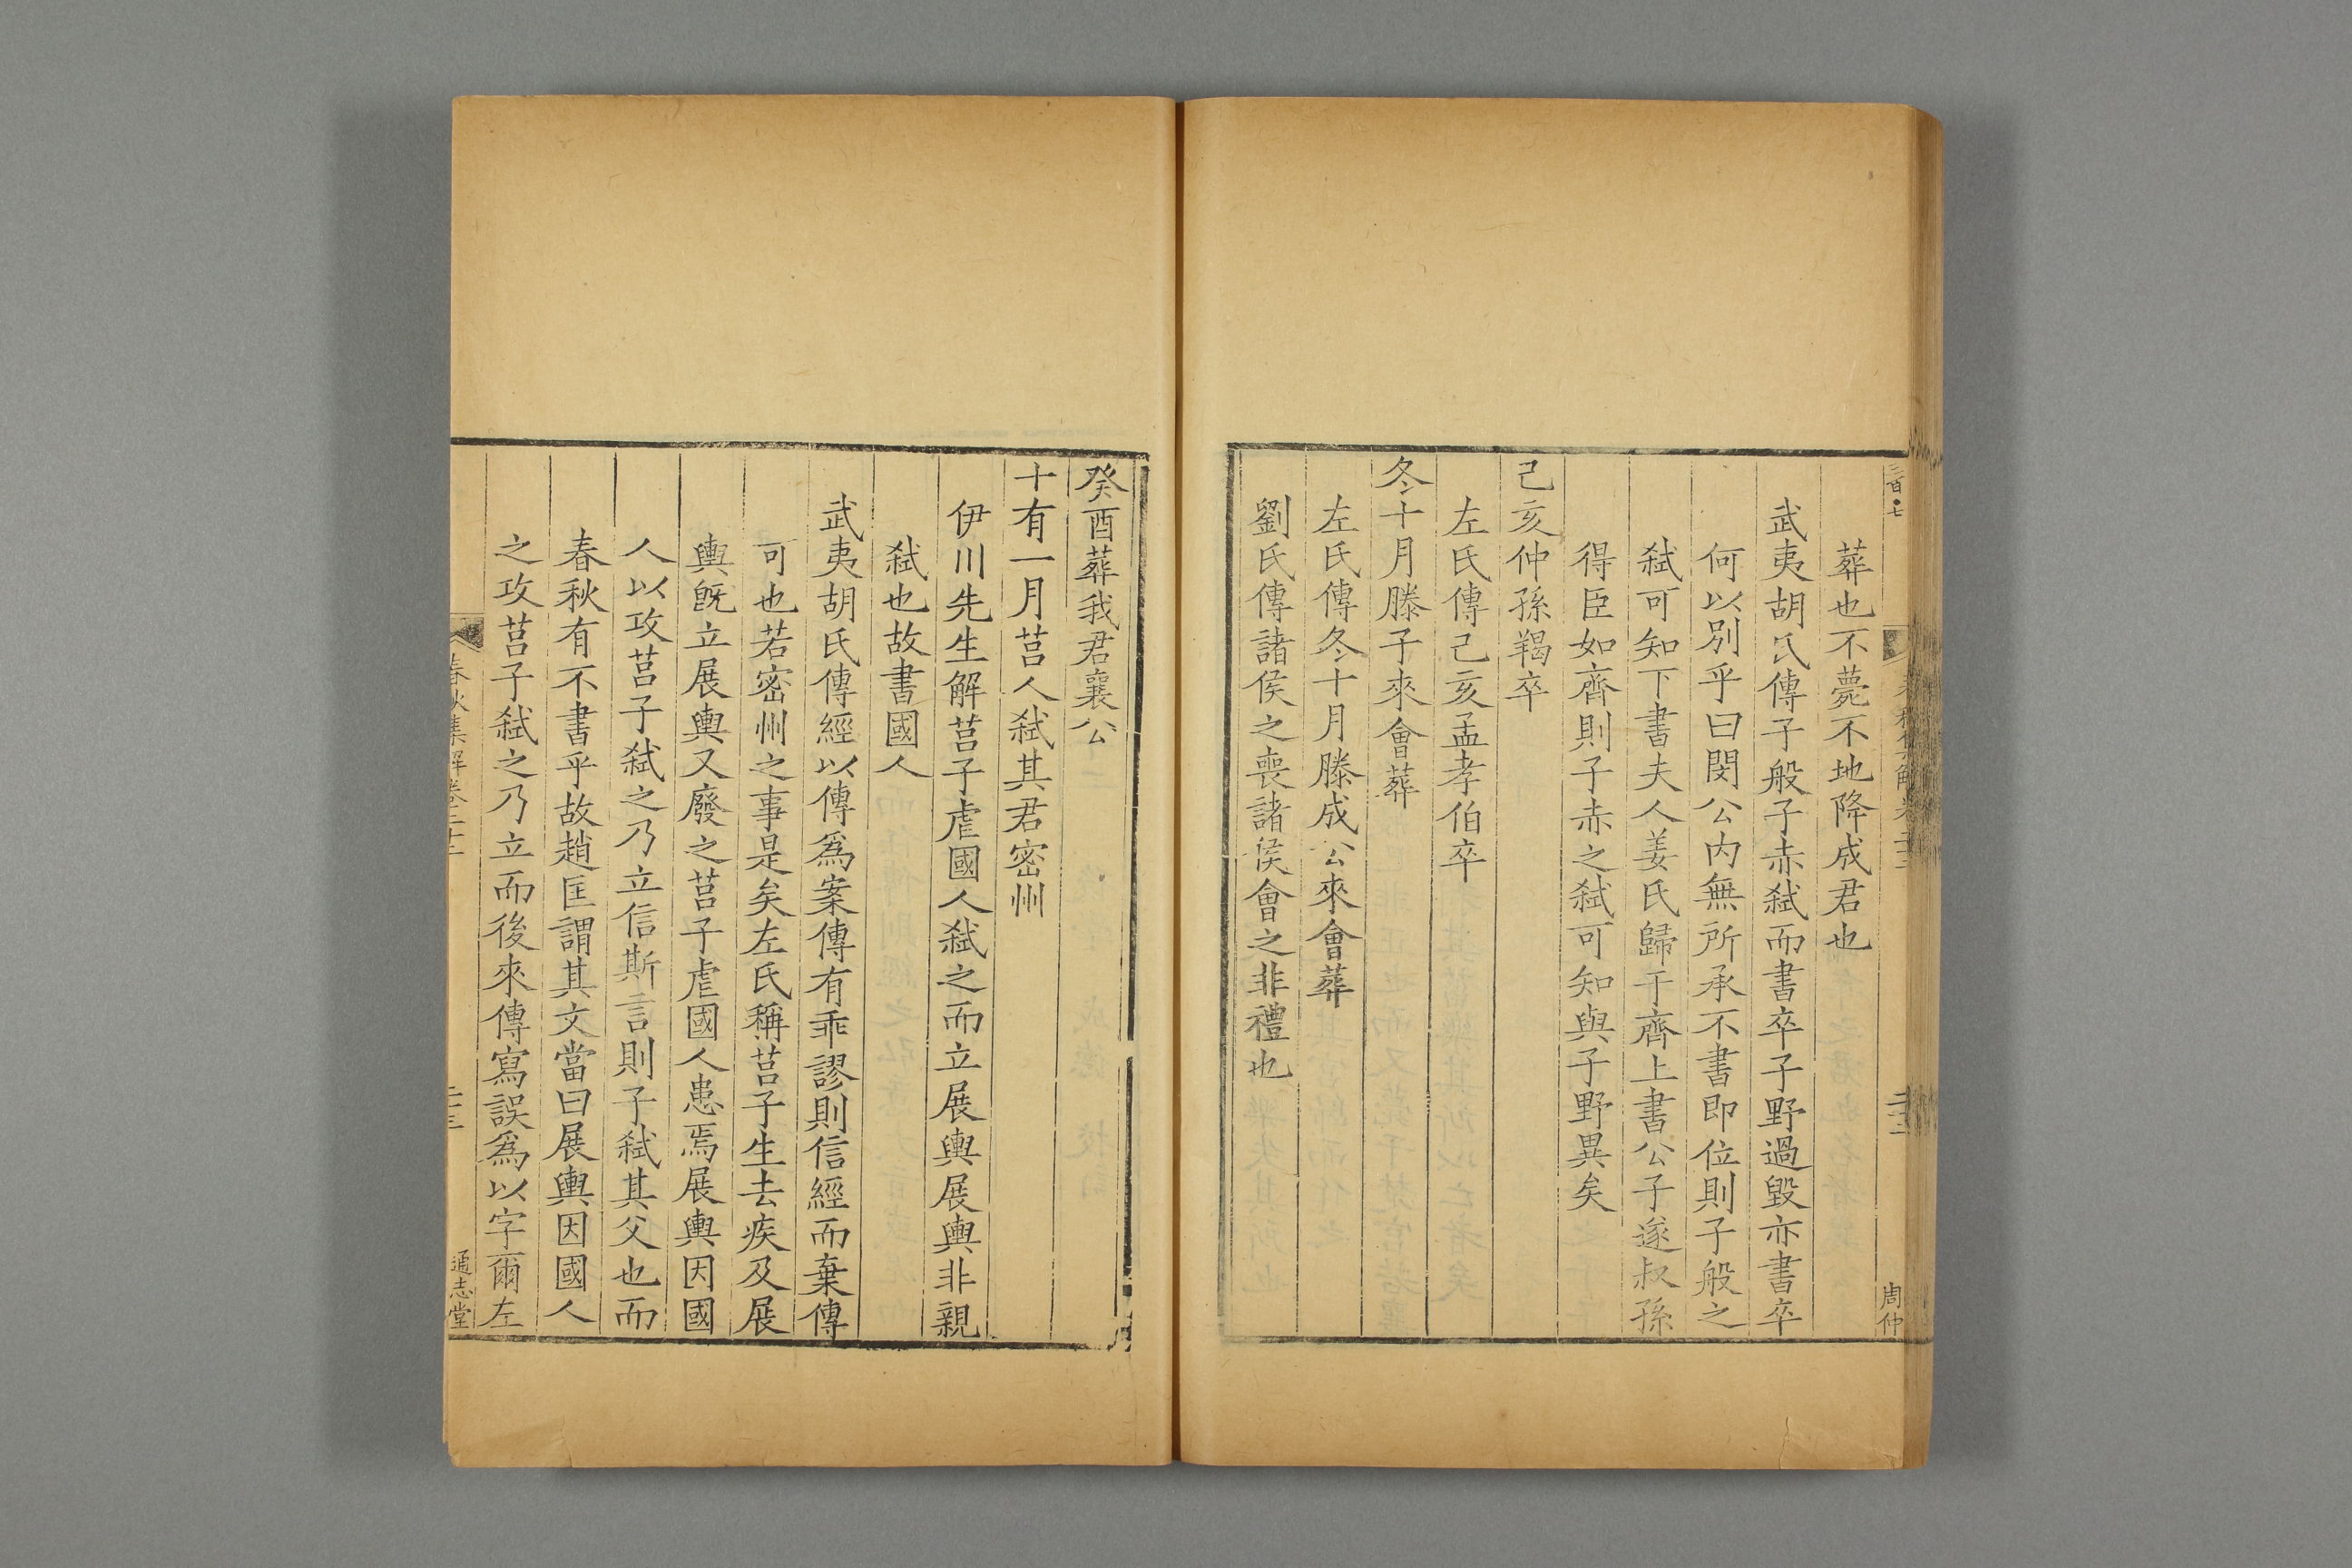 三百○七
周仲
葬也不薨不地降成君也
武夷胡氏傳子般子赤弑而書卒子野過毀亦書卒
何以別乎曰閔公內無所承不書即位則子般之
弑可知下書夫人姜氏歸于齊上書公子遂叔孫
得臣如齊則子赤之弑可知與子野異矣
己亥仲孫羯卒
左氏傳己亥孟孝伯卒
冬十月滕子來會葬
左氏傳冬十月滕成公來會葬
劉氏傳諸侯之喪諸侯會之非禮也
癸酉葬我君襄公
十有一月莒人弑其君密州
伊川先生解莒子虐國人弑之而立展輿展輿非親
弑也故書國人
武夷胡氏傳經以傳爲案傳有乖謬則信經而棄傳
可也若密州之事是矣左氏稱莒子生去疾及展
輿既立展輿又廢之莒子虐國人患焉展輿因國
人以攻莒子弑之乃立信斯言則子弑其父也而
春秋有不書乎故趙匡謂其文當曰展輿因國人
之攻莒子弑之乃立而後來傳寫誤爲以字爾左
春秋集解卷二十二
通志堂